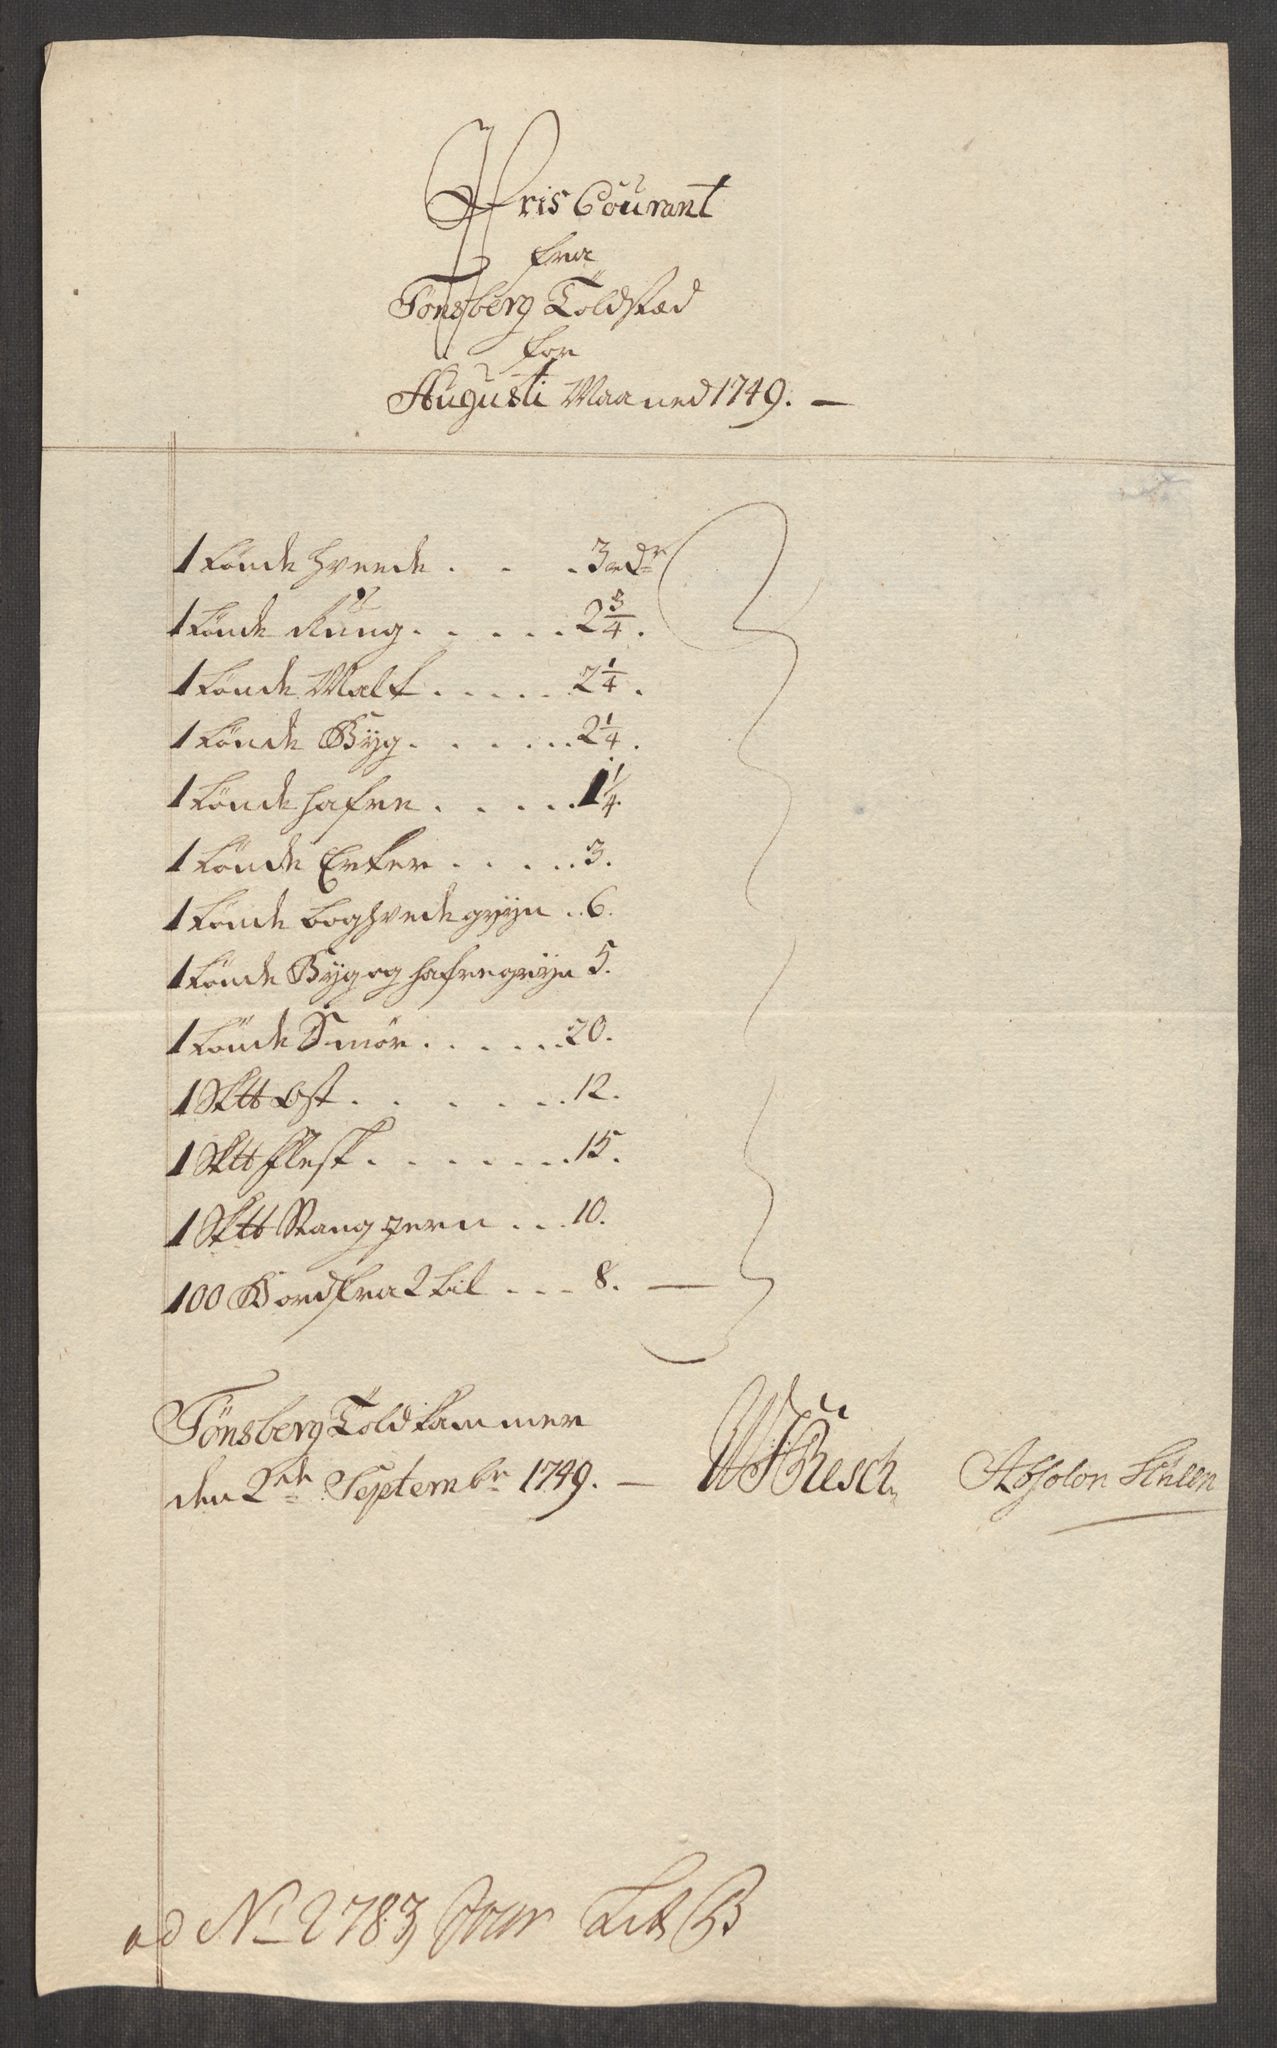 Pris Courant
fra
Tønsberg Toldstæd
for
Augusti Maaned 1749. —
1 tønde Hveede . . . 3 rdr
1 tønde Rúng . . . . . 2 3/4.
1 tønde Malt . . . . . 2 1/4.
1 tønde Byg . . . . . . 2 1/4.
1 tønde Hafre . . . . . 1 1/4.
1 tønde Erter . . . . . 3.
1 tønde boghvede gryn . . 6.
1 tønde Byg og Hafre gryn 5.
1 tønde Smør . . . . . . 20.
1 S℔ Ost . . . . . . 12.
1 S℔ Flesk . . . . . . . 15.
1 S℔ Stang Jern . . . 10.
100 Bord fra 2 til . . . 8. —
Tønsberg Toldkammer
den 2de Septembr 1749. —
Resch
Absolon
ad No 2783 Lit B